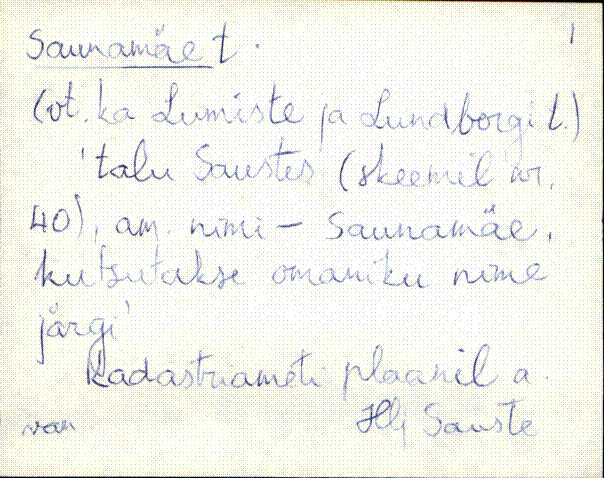 Saunamäe t. 1
(vt. ka Lumiste ja Lundborgi t.)
'talu Saustes (skeemil nr.
40), am. nimi - Saunamäe,
kutsutakse omaniku nime
järgi'
Kadastriameti plaanil a.
van Hlj Sauste